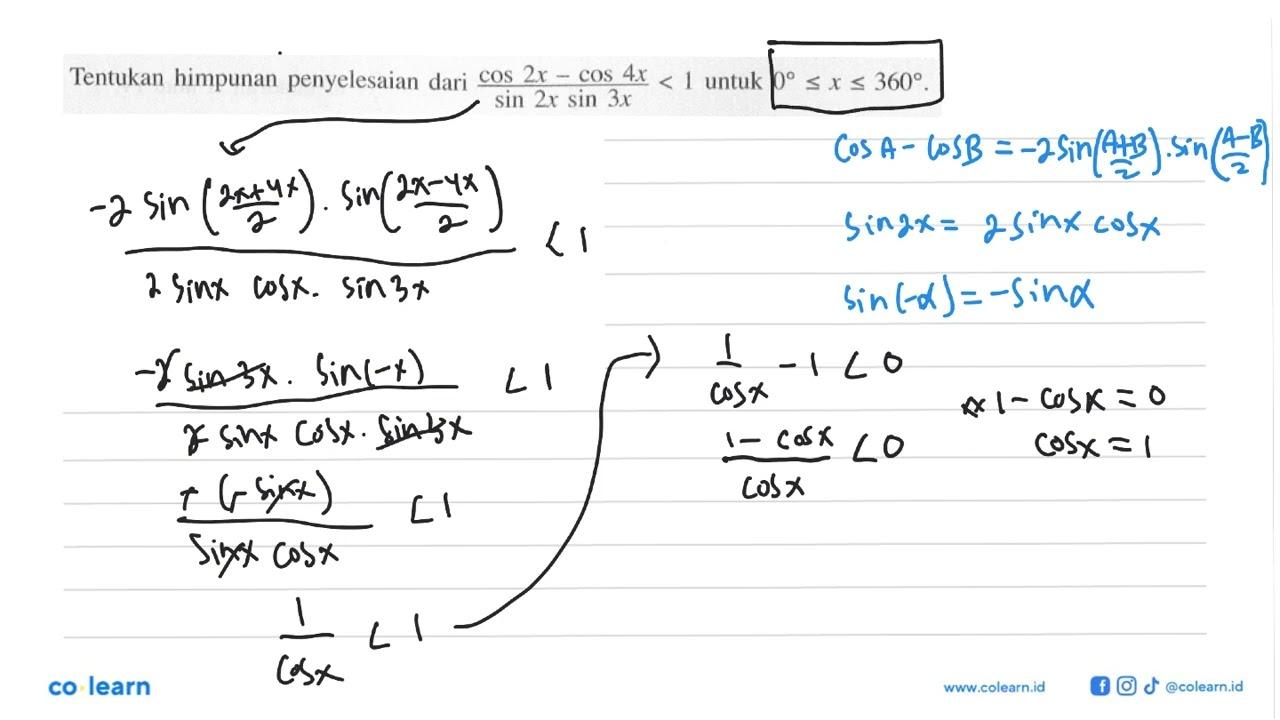 Tentukan himpunan penyelesaian dari (cos 2x − cos 4x)/(sin 2x sin 3x) < 1 untuk 0° ≤ x ≤ 360°.
cos A − cos B = −2 sin((A+B)/2) . sin((A−B)/2)
sin 2x = 2 sin x cos x
sin(−α) = −sin α
(−2 sin((2x+4x)/2) . sin((2x−4x)/2))/(2 sin x cos x . sin 3x) < 1
(−2 sin 3x . sin(−x))/(2 sin x cos x . sin 3x) < 1
(+ (− sin x))/(sin x cos x) < 1
1/cos x < 1
1/cos x − 1 < 0
(1 − cos x)/cos x < 0
** 1 − cos x = 0
cos x = 1
co learn
www.colearn.id
@colearn.id